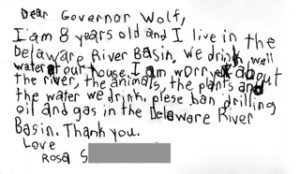 Dear Governor Wolf,
I'am 8 years old and I live in the
Delaware River Basin. We drink well
water at our house. I am worryed about
the river, the animals, the plants and
the water we drink. plese ban drilling
oil and gas in the Delaware River
Basin. Thank you.
Love
Rosa S